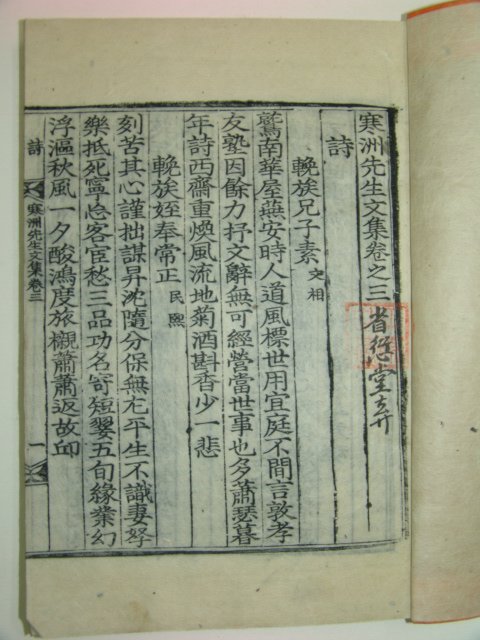 寒洲先生文集卷之三
省愆堂弆
詩
輓族兄子素文相
鵞南華屋蕪安時人道風標世用宜庭不間言敦孝
友塾因餘力抒文辭無可經營當世事也多蕭瑟暮
年詩西齋重煥風流地菊酒斟香少一悲
輓族姪奉常正民熙
刻苦其心謹拙謀昇沈隨分保無尤平生不識妻孥
樂抵死寧忘客宦愁三品功名寄短翣五旬緣業幻
浮漚秋風一夕酸鴻度旅櫬蕭蕭返故邱
詩
寒洲先生文集卷三
一